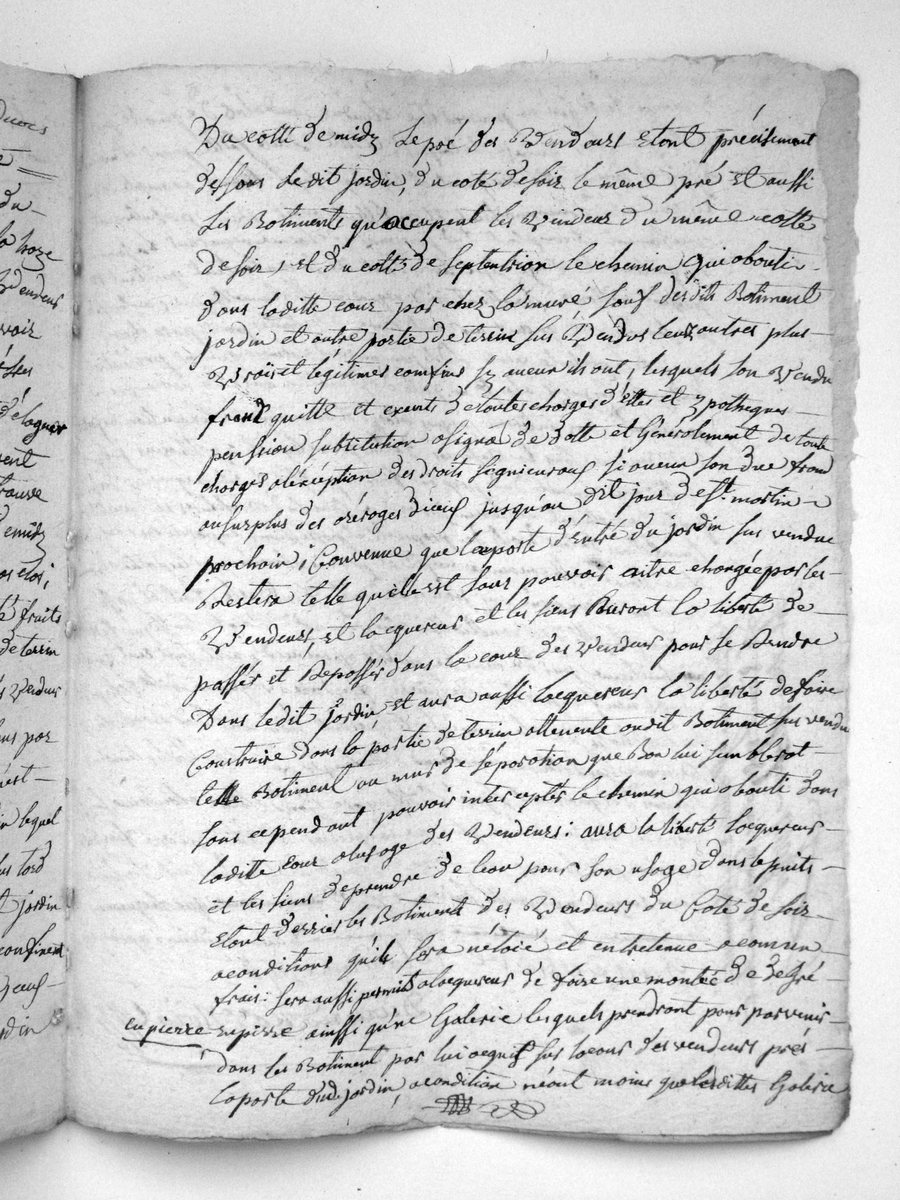 Du cotté de midy le pré des Vendeurs etant précisement
dessous ledit jardin, du coté de soir le même pré et aussi
les Batiments qu'occupent les Vendeurs du même cotté
de soir, et du cotté de septentrion le chemin qui abouti
dans laditte cour par chez la mure sauf desdits Batiment
jardin et autre partie de terrein sus Vendus leurs autres plus
Vrais et légitimes confins sy aucun ils ont, lesquels son Vendu
franc quitte et exents de toutes charges d'ettes et ypotheques
pension substitution asigna de dotte et Générolement de toute
charges aléxéption des droits segnieuraux si aucun son due franc
au surplus des arérages d'iceux jusqu'au dit jour de St. martin
prochain; Convenue que la porte d'Entré du jardin sus vendue
Restera telle quélle est sans pouvoir aitre chargée par les
Vendeurs, et lacquereur et les siens Auront la liberté de
passér et Repassér dans la cour des Vendeurs pour se Rendre
Dans ledit jardin, et aura aussi lacquereur la liberté de faire
Construire dans la partie de terrein attenente audit Batiment sus vendu
telle Batiment ou mur de séparation que Bon lui semblerat
sans cependant pouvoir intercepter le chemin qui abouti dans
laditte cour alusage des Vendeurs: aura la liberté lacquereur
et les siens de prendre de leau pour son usage dans le puits
etant derrier les Batiments des Vendeurs du Coté de soir
aconditions qu'il sera nétoié et entretenue acomun
frais: sera aussi permis alacquereur de faire une montée de degré
en pierre en pierre ainssi qu'ne Galerie lesquels prendront pour parvenir
dans les Batiment par lui acquis sus lacour des vendeurs prés
laporte dud. jardin, acondition néant moins que lesdittes Galerie